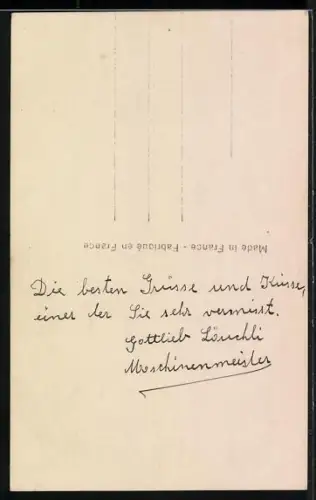 Made in France - Fabriqué en France
Die besten Grüsse und Küsse,
einer der Sie sehr vermisst.
Gottlieb Löuchli
Maschinenmeister